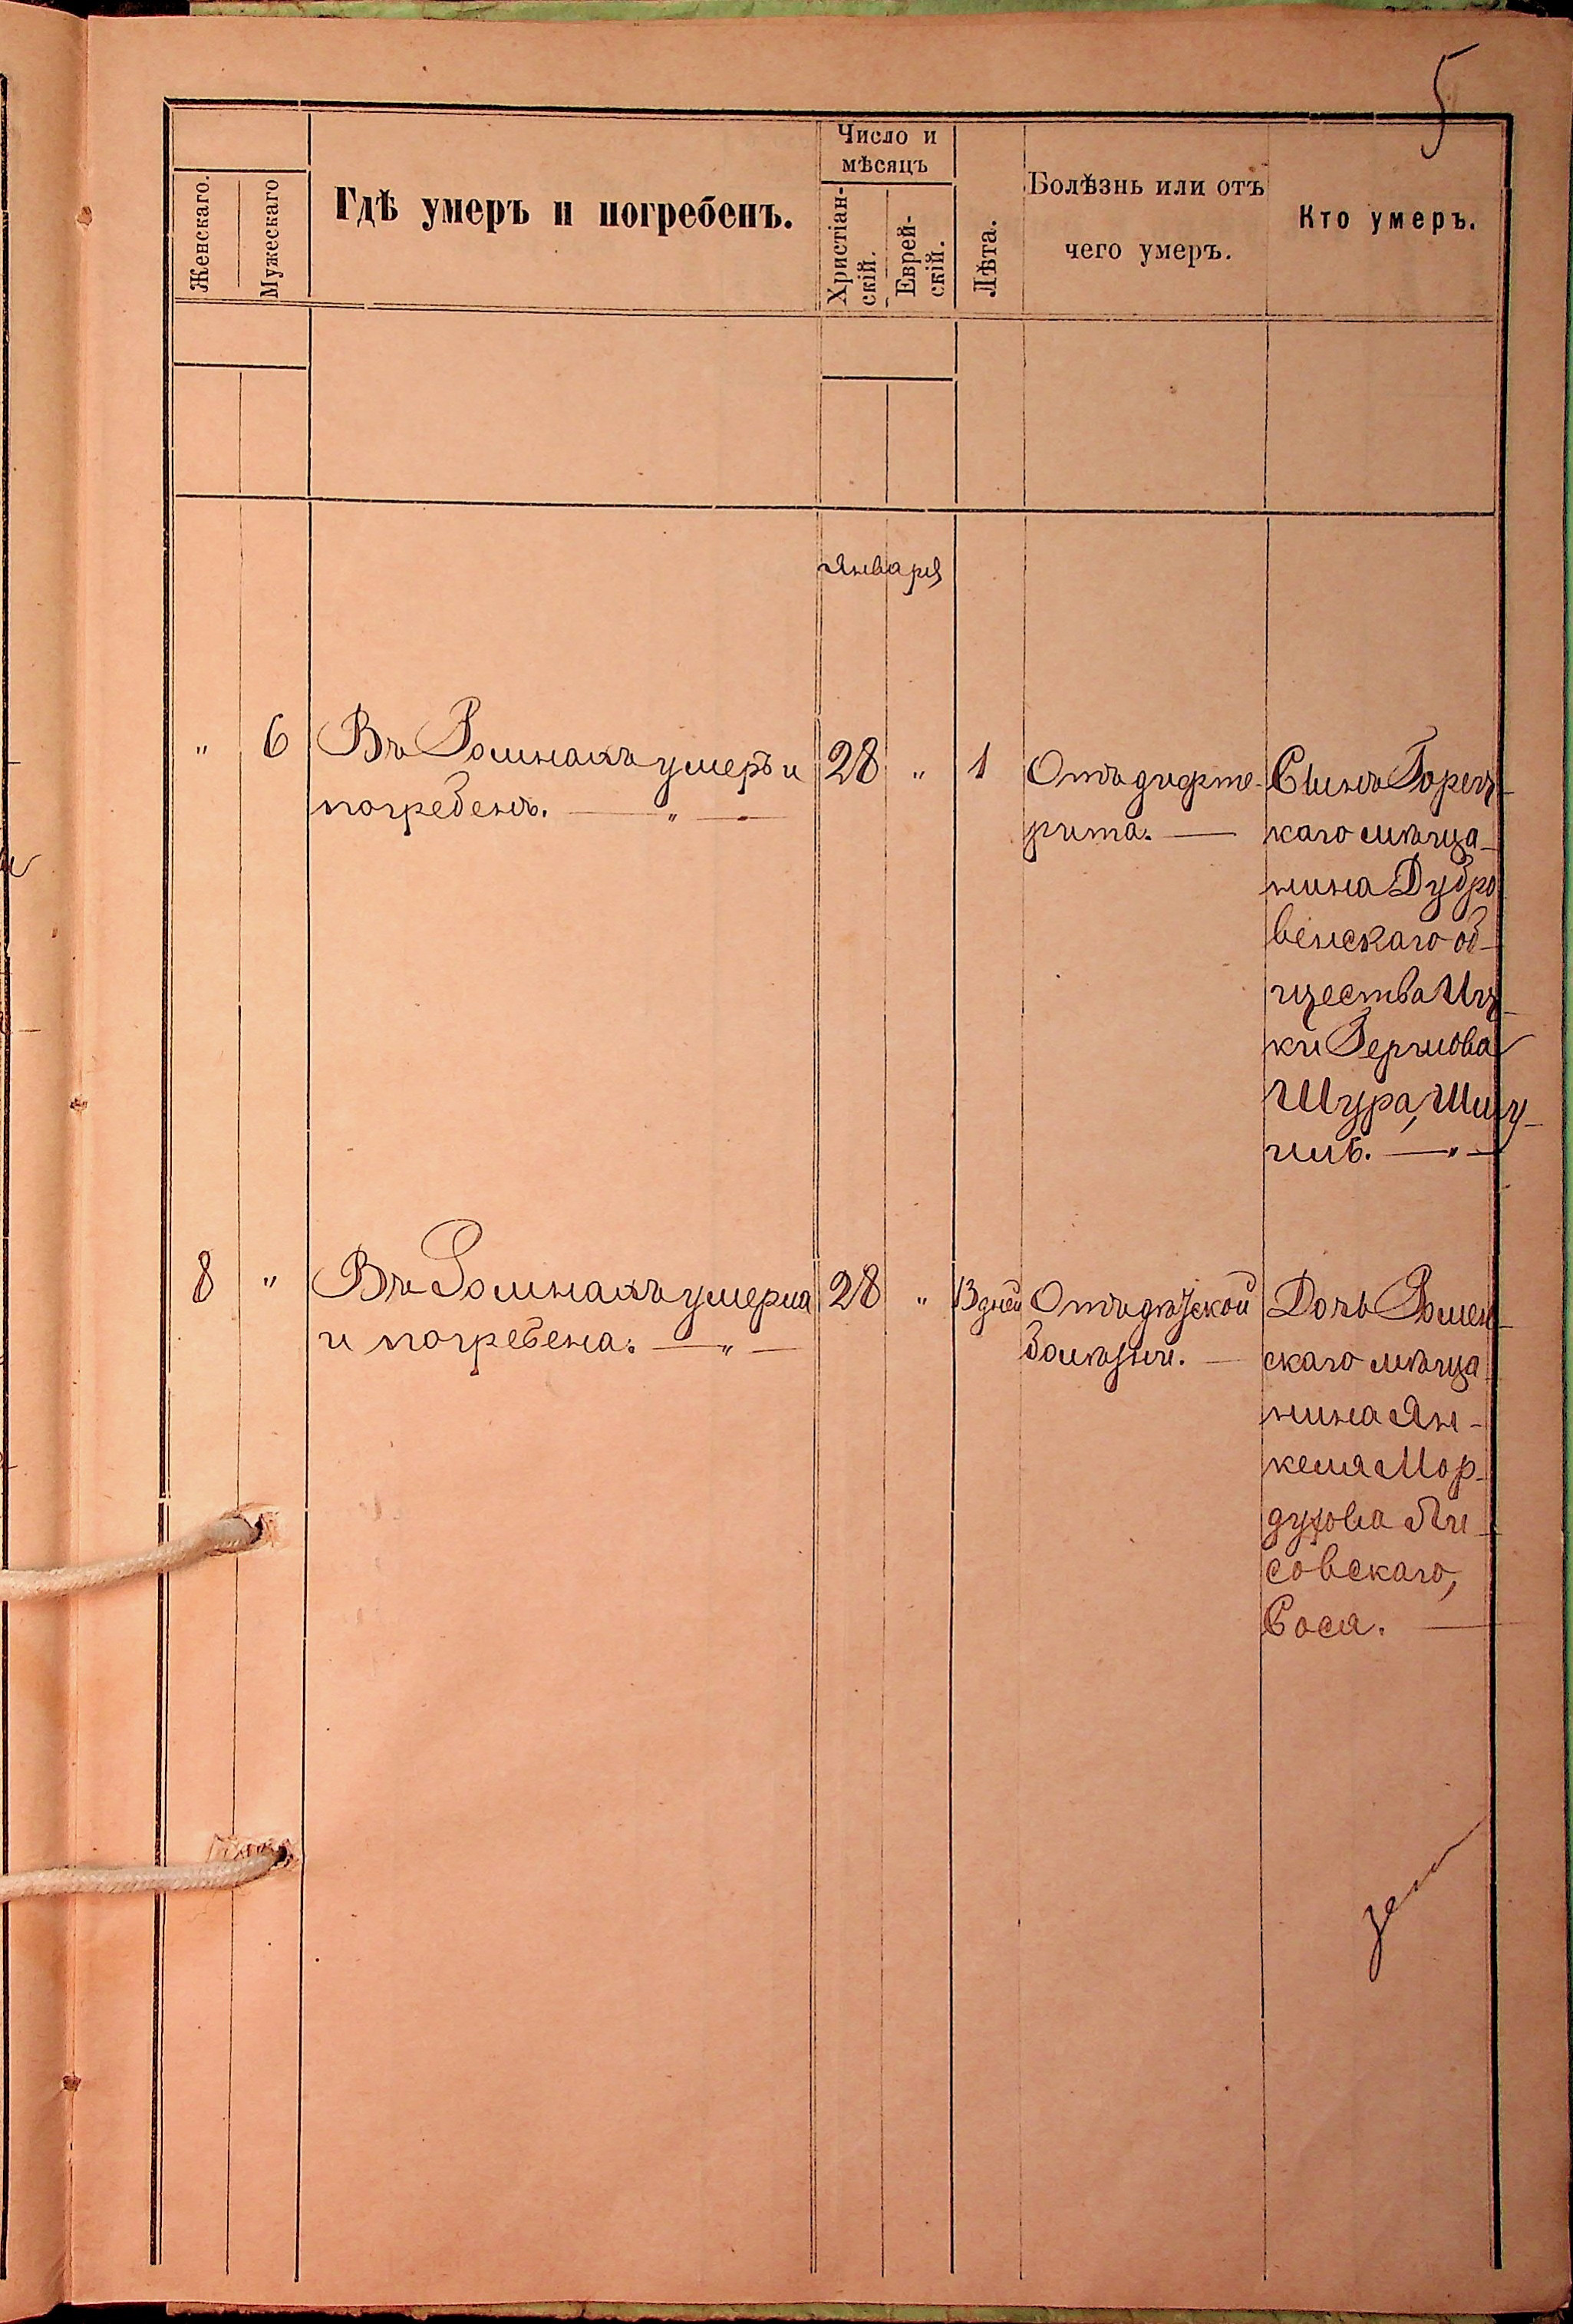 5
Женскаго.
Мужескаго
Гдѣ умеръ и погребенъ.
Число и
мѣсяцъ
Христіан-
скій.
Еврей-
скій.
Лѣта.
Болѣзнь или отъ
чего умеръ.
Кто умеръ.
Января
" 6
Въ Ромнахъ умеръ и
погребенъ. — " —
28 " 1
Отъ дифте-
рита. —
Сынъ Горец-
каго мѣща-
нина Дубро
венскаго об-
щества Иц-
ки Гершова
Шура,
8 "
Въ Ромнахъ умерла
и погребена. — " —
28 " 13 дней
Отъ дѣтской
болѣзни. —
Дочь Ромен-
скаго мѣща
нина Ян-
келя Мор-
духова Ли-
совскаго,
Сося. —